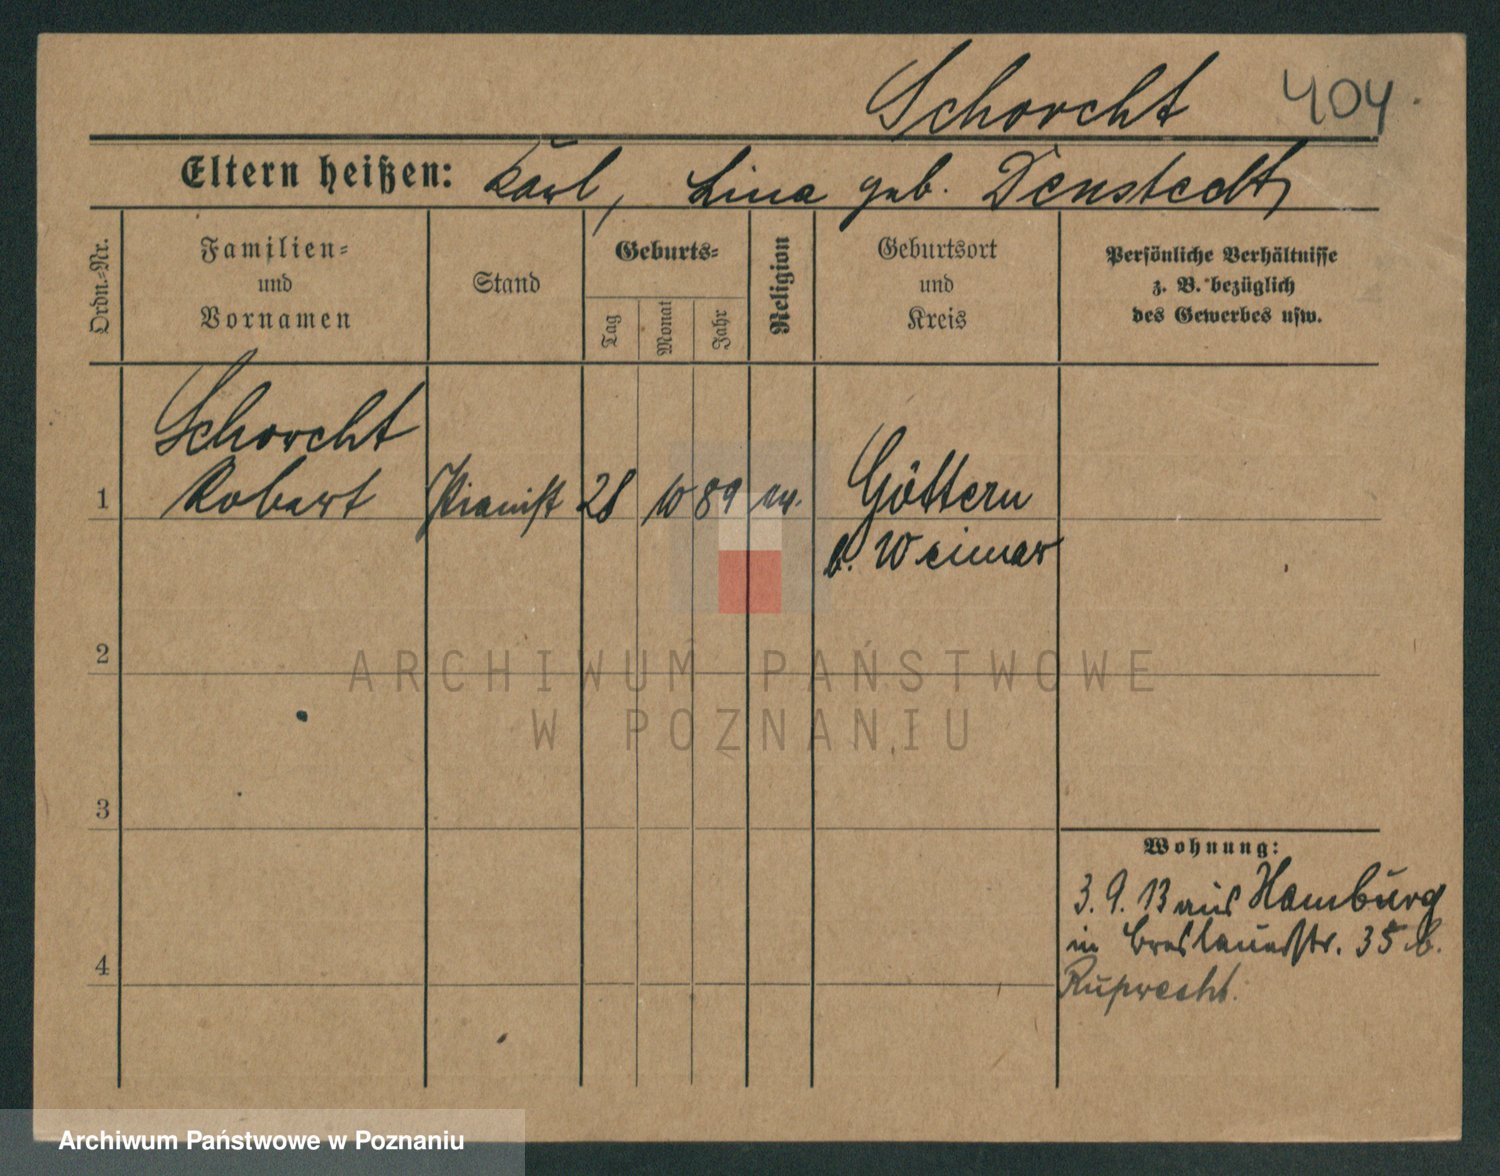 Schorcht 404
Eltern heißen: Karl, Lina geb. Denstedt
Ordn.=Nr.
Familien=
und
Vornamen
Stand
Geburts=
Tag
Monat
Jahr
Religion
Geburtsort
und
Kreis
Persönliche Verhältnisse
z. B. bezüglich
des Gewerbes usw.
Schorcht
1 Robert Pianist 28 10 89 ev. Göttern
b. Weimar
2
ARCHIWUM PAŃSTWOWE
W POZNANIU
3
Wohnung:
3. 9. 13 aus Hamburg
in Breslauerstr. 35 b.
4
Ruprecht.
Archiwum Państwowe w Poznaniu